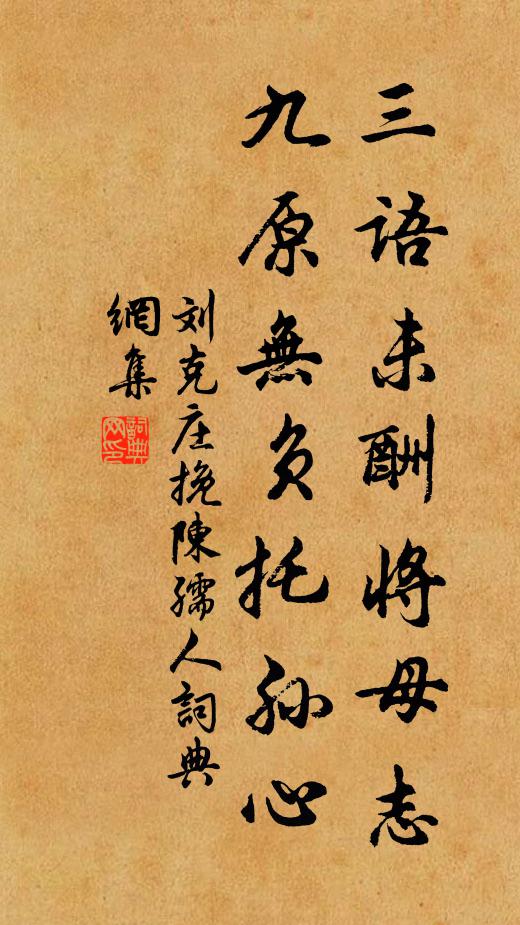 三语未酬将母志
九原無负托孙心
刘克庄挽陳孺人詞典
網集
詞典
网印